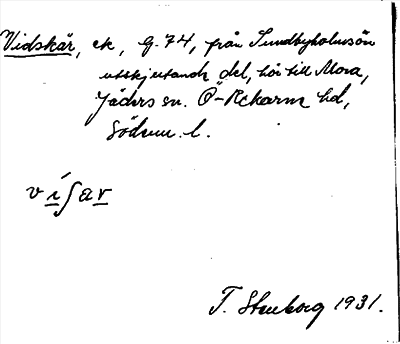 Vidskär, ek, G. 74, från Sundbyholmsön
utskjutande del, hör till Mora,
Jäders sn. Ö-Rekarne hd,
Söderm. l.
v í ʃ a r
T. Stenborg 1931.